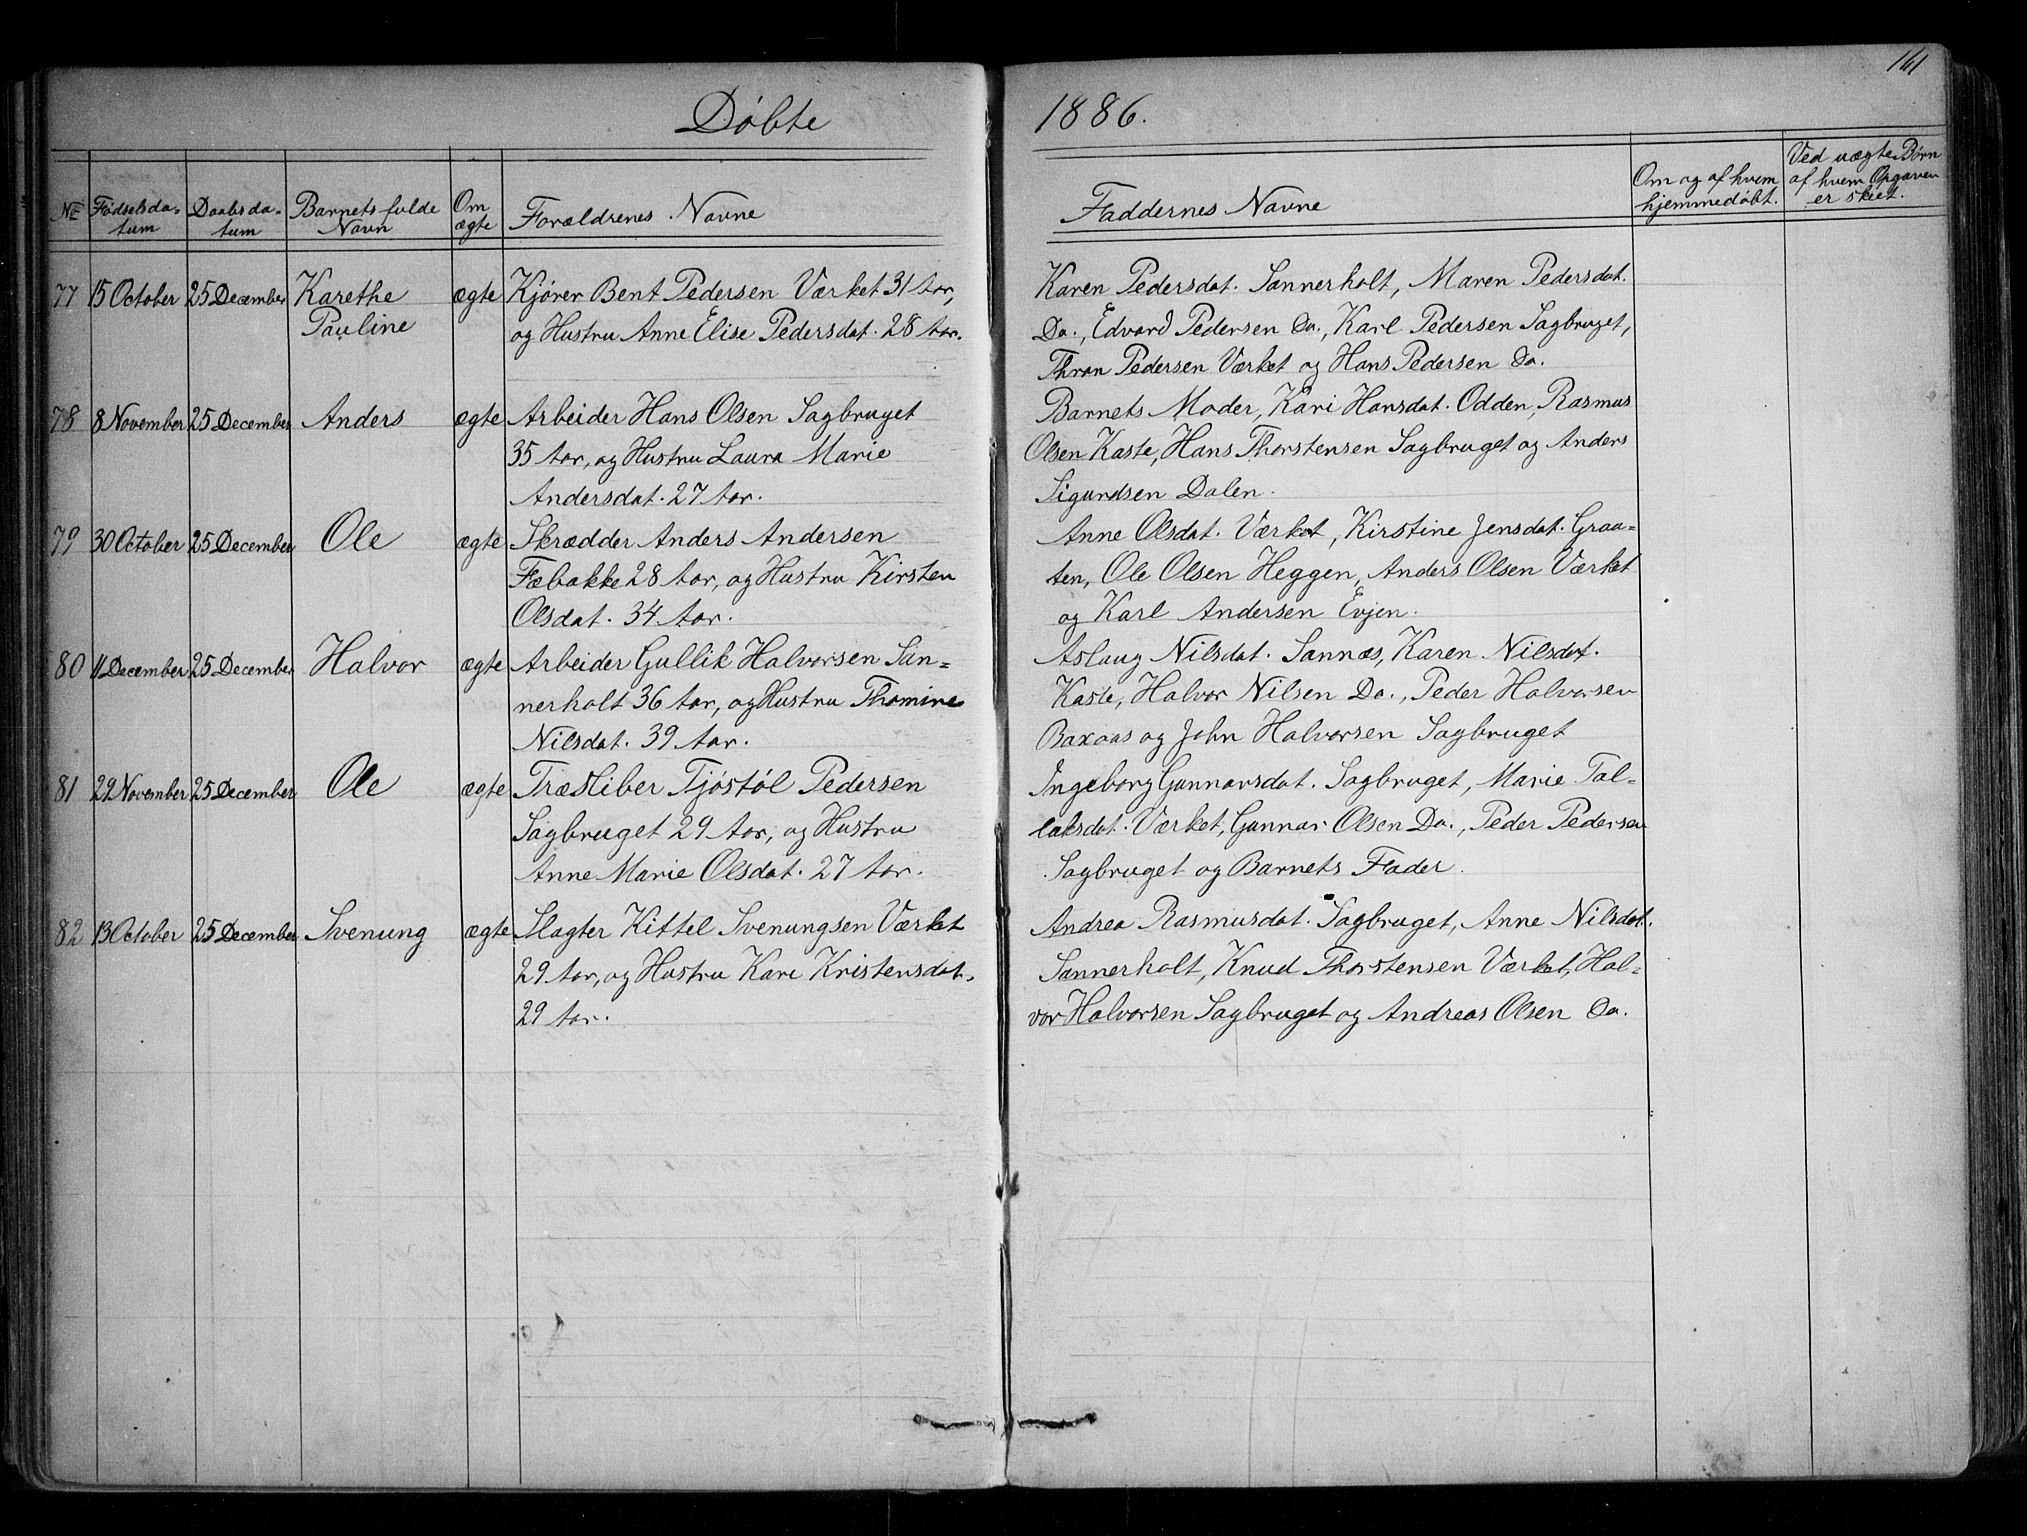 161
Døbte 1886.
No Fødselsda- Daabsda- Barnets fulde Om Forældrenes Navne Faddernes Navne Om og af hvem Ved uægte Børn
tum tum Navn ægte hjemmedøbt. af hvem Opgaven
er skeet.
77 15 October 25 December Karethe ægte Kjører Bent Pedersen Værket 31 Aar,
Pauline og Hustru Anne Elise Pedersdat. 28 Aar.
Karen Pedersdat. Sannerholt, Maren Pedersdat.
Do., Edvard Pedersen Do., Karl Pedersen Sagbruget,
Thron Pedersen Værket og Hans Pedersen Do.
78 8 November 25 December Anders ægte Arbeider Hans Olsen Sagbruget
35 Aar, og Hustru Laura Marie
Andersdat. 27 Aar.
Barnets Moder, Kari Hansdat. Odden, Rasmus
Olsen Kaste, Hans Thorstensen Sagbruget og Anders
Sigurdsen Dalen.
79 30 October 25 December Ole ægte Skrædder Anders Andersen
Fæbakke 28 Aar, og Hustru Kirsten
Olsdat. 34 Aar.
Anne Olsdat. Værket, Kirstine Jensdat. Graa-
ten, Ole Olsen Heggen, Anders Olsen Værket
og Karl Andersen Evjen.
80 11 December 25 December Halvor ægte Arbeider Gullik Halvorsen San-
nerholt 36 Aar, og Hustru Thomine
Nilsdat. 39 Aar.
Aslaug Nilsdat. Sannæs, Karen Nilsdat.
Kaste, Halvor Nilsen Do., Peder Halvorsen
Baxaas og John Halvorsen Sagbruget
81 29 November 25 December Ole ægte Træsliber Tjøstøl Pedersen
Sagbruget 29 Aar, og Hustru
Anne Marie Olsdat. 27 Aar.
Ingeborg Gunnarsdat. Sagbruget, Marie Tal-
laksdat. Værket, Gunnar Olsen Do., Peder Pedersen
Sagbruget og Barnets Fader.
82 13 October 25 December Svenung ægte Slagter Kittel Svenungsen Værket
29 Aar, og Hustru Kari Kristensdat.
29 Aar.
Andrea Rasmusdat. Sagbruget, Anne Nilsdat.
Sannerholt, Knud Thorstensen Værket, Hal-
vor Halvorsen Sagbruget og Andreas Olsen Do.